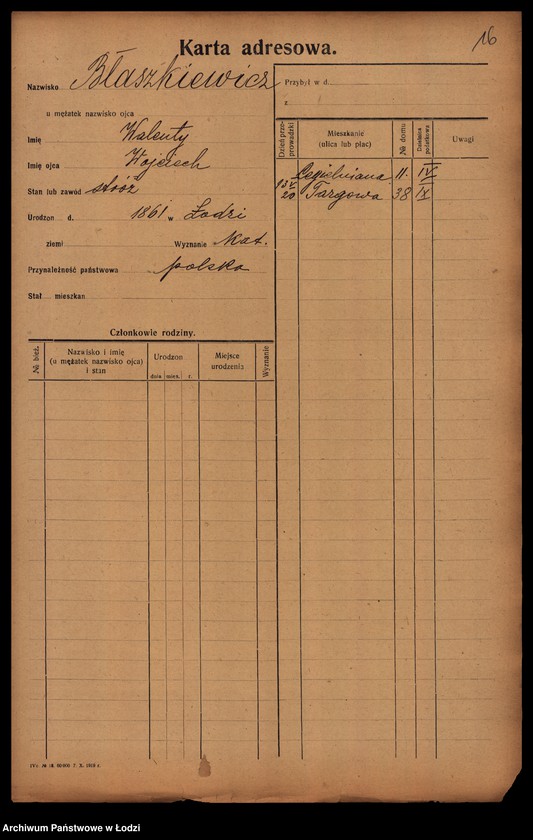 16
Karta adresowa.
Nazwisko Błaszkiewicz
u mężatek nazwisko ojca
Imię Walenty
Imię ojca Wojciech
Stan lub zawód stróż
Urodzon d. 1861 w Łodzi
ziemi Wyznanie kat.
Przynależność państwowa polska
Stał mieszkan
Przybył w d.
z
Dzień przeprowadzki Mieszkanie (ulica lub plac) № domu Dzielnica podatkowa Uwagi
Cegielniana 11. IV
13 V 20 Targowa 38 IX
Członkowie rodziny.
№ bież. Nazwisko i imię (u mężatek nazwisko ojca) i stan Urodzon dnia mies. r. Miejsce urodzenia Wyznanie
X. 1919 r.
Archiwum Państwowe w Łodzi